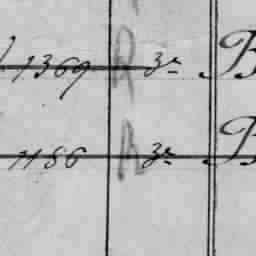 1369 R 3r B
1186 R 3r B